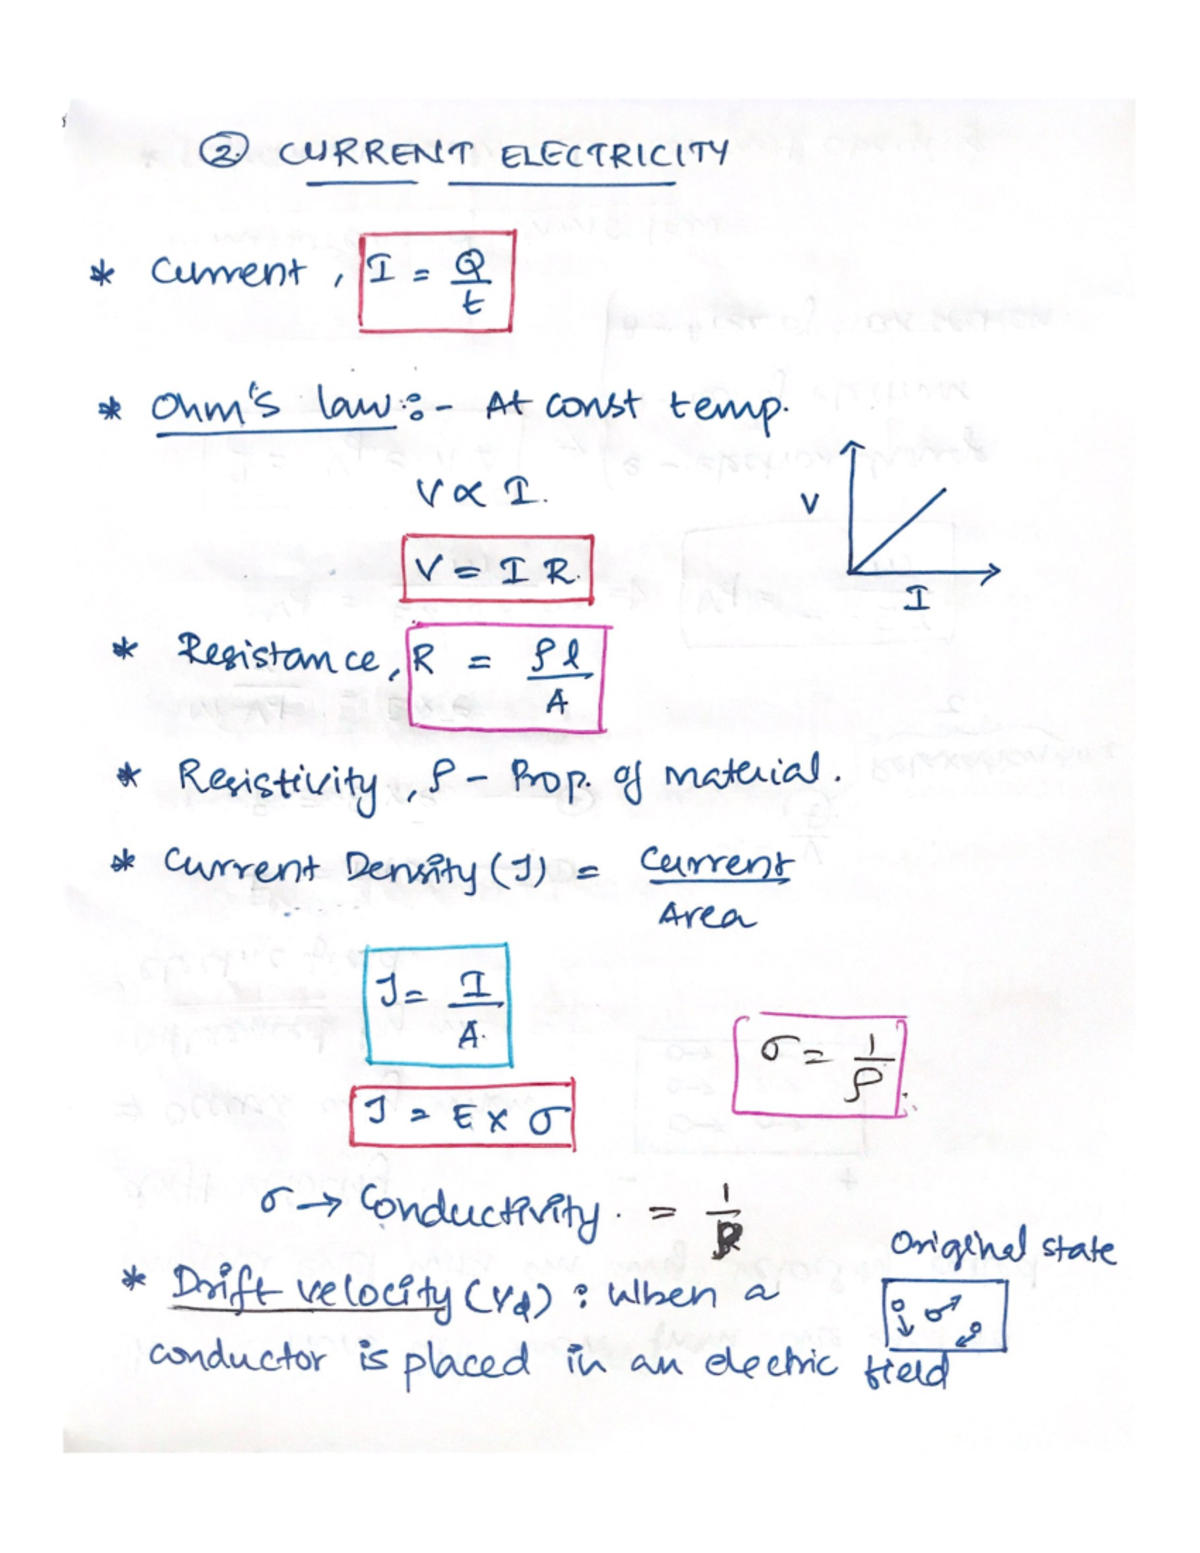 ② CURRENT ELECTRICITY
* Current, I = Q/t
* Ohm's law :- At const temp.
V ∝ I.
V = I R.
V
I
* Resistance, R = ρl/A
* Resistivity, ρ - Prop. of material.
* Current Density (J) = Current/Area
J = I/A.
σ = 1/ρ
J = E × σ
σ → Conductivity. = 1/ρ
Original state
* Drift velocity (Vd) : When a
conductor is placed in an electric field